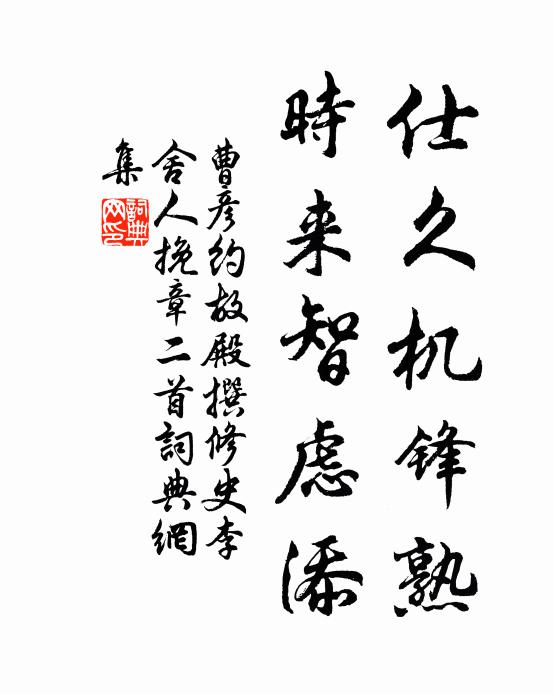 仕久机锋熟
時来智虑添
曹彦约故殿撰修史李
舍人挽章二首詞典網
集
詞典网印